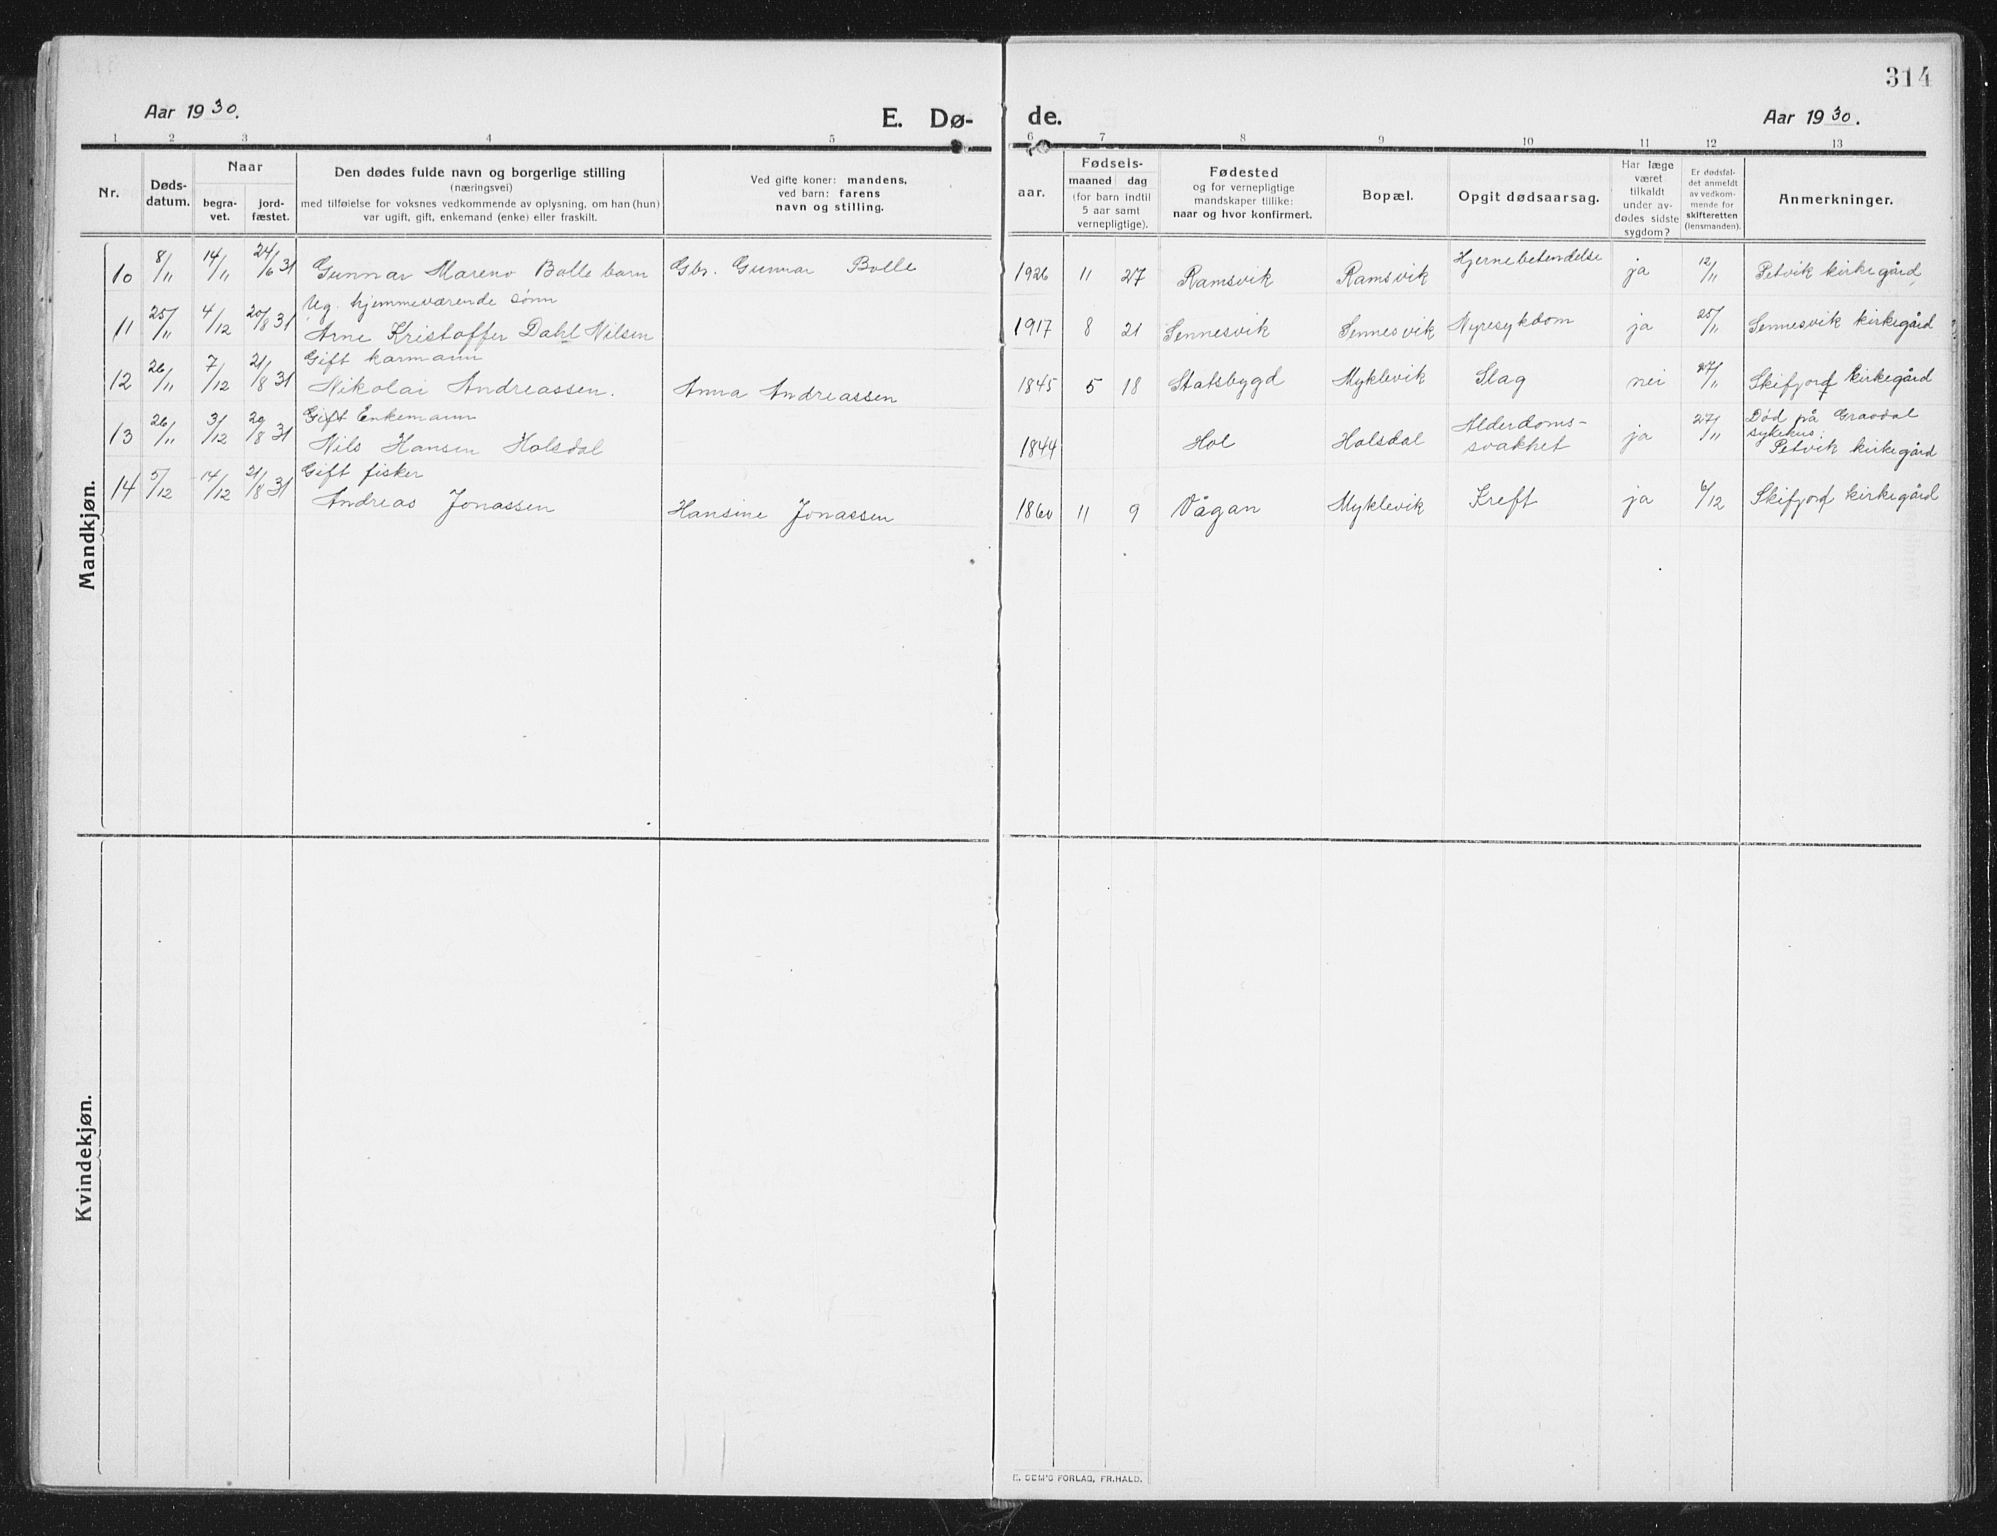 314
Aar 1930.
E. Dø-
de.
Aar 1930.
1 2 3 4 5 6 7 8 9 10 11 12 13
Nr.
Døds-
datum.
Naar
begra-
vet.
jord-
fæstet.
Den dødes fulde navn og borgerlige stilling
(næringsvei)
med tilføielse for voksnes vedkommende av oplysning, om han (hun)
var ugift, gift, enkemand (enke) eller fraskilt.
Ved gifte koner: mandens,
ved barn: farens
navn og stilling.
aar.
Fødsels-
maaned dag
(for barn indtil
5 aar samt
vernepligtige).
Fødested
og for vernepligtige
mandskaper tillike:
naar og hvor konfirmert.
Bopæl.
Opgit dødsaarsag.
Har læge
været
tilkaldt
under av-
dødes sidste
sygdom?
Er dødsfal-
det anmeldt
av vedkom-
mende for
skifteretten
(lensmanden).
Anmerkninger.
Mandkjøn.
10 8/11 14/11 24/6 31 Gunnar Mareno Bolle barn Gbr. Gunnar Bolle 1926 11 27 Ramsvik Ramsvik Hjernebetendelse ja 12/11 Petvik kirkegård
Ug. hjemmeværende sønn
11 25/11 4/12 20/8 31 Arne Kristoffer Dahl Nilsen 1917 8 21 Sennesvik Sennesvik Nyresykdom ja 25/11 Sennesvik kirkegård
Gift kårmann
12 26/11 7/12 21/8 31 Nikolai Andreassen. Anna Andreassen 1845 5 18 Statsbygd Myklevik Slag nei 27/11 Skifjord kirkegård
Gift Enkemann
13 26/11 3/12 20/8 31 Nils Hansen Holsdal 1844 Hol Holsdal Alderdoms-
svakhet ja 27/11 Død på Gravdal
sykehus.
Petvik kirkegård
Gift fisker
14 5/12 14/12 21/8 31 Andreas Jonassen Hansine Jonassen 1860 11 9 Vågan Myklevik Kreft ja 6/12 Skifjord kirkegård
Kvindekjøn.
E. SEM'S FORLAG, FR.HALD.